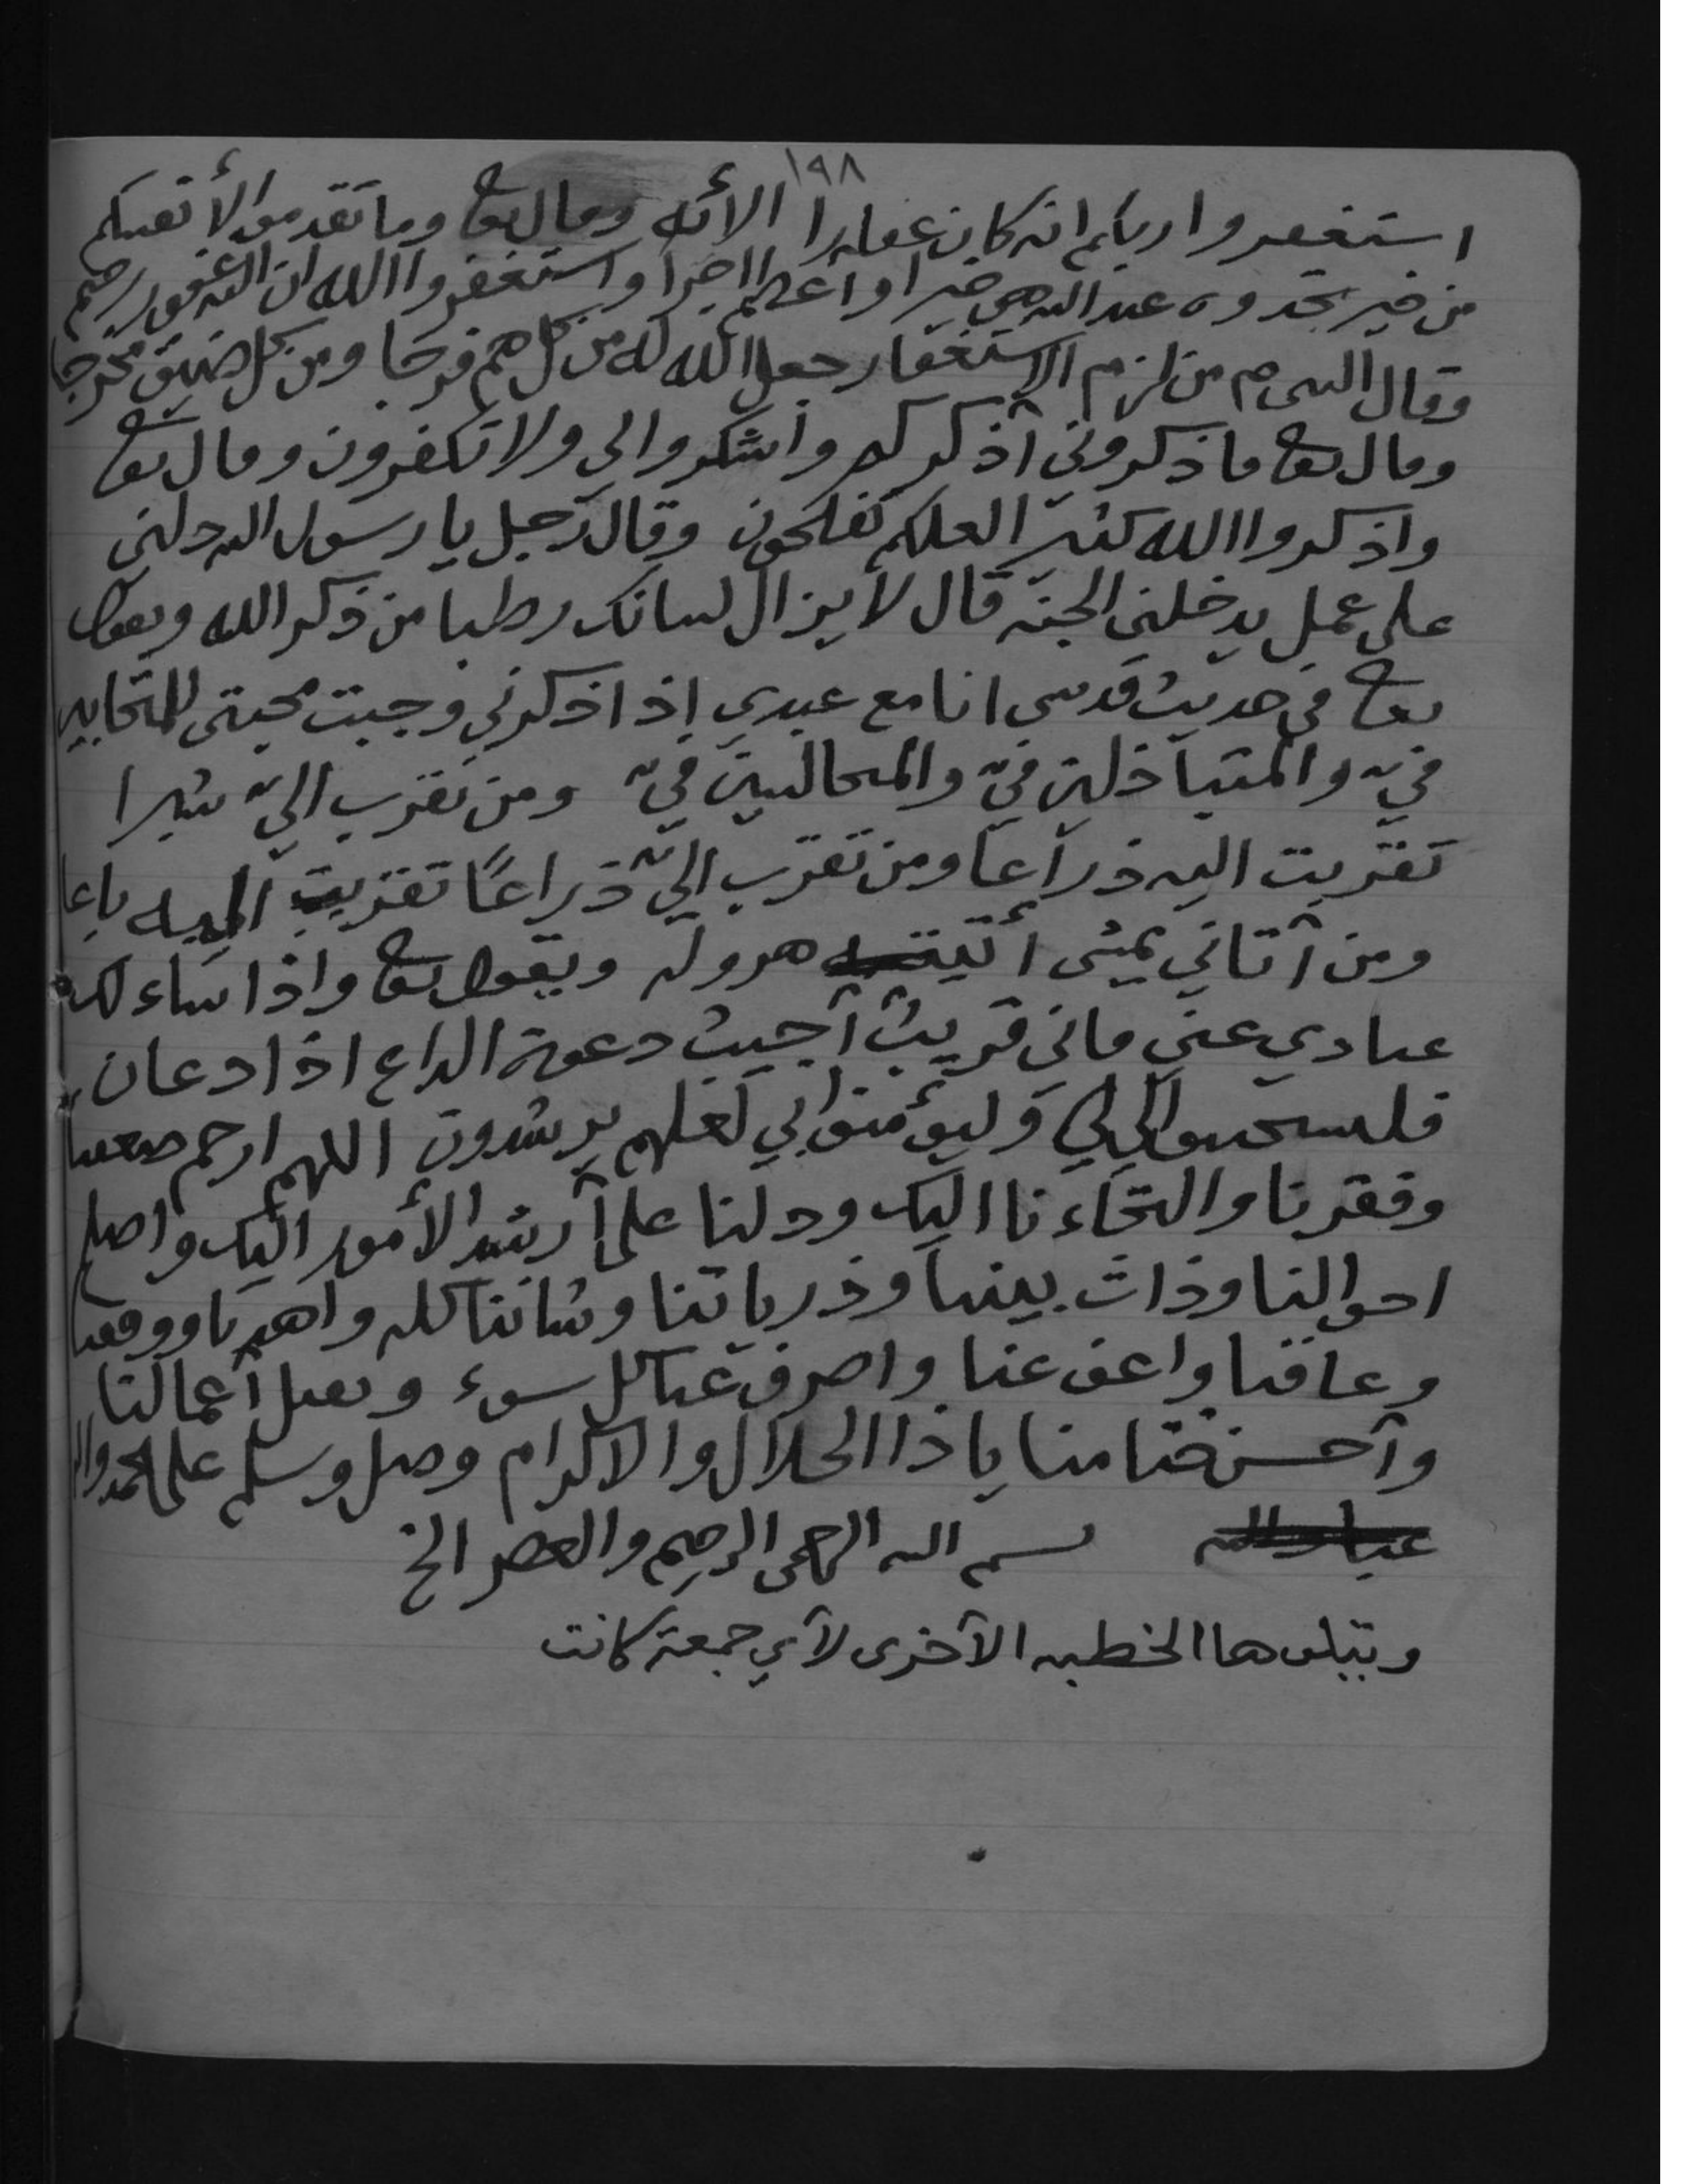 ١٩٨
استغفروا ربكم انه كان غفارا الأيه وقال تعا وما تقدموا لأنفسكم
من خير تجدوه عند الله هو خيرا وأعظم اجرا واستغفروا الله ان الله غفور رحيم
وقال النبي ص من لزم الاستغفار جعل الله له من كل هم فرجا ومن كل ضيق مخرجا
وقال تعا فاذكروني أذكركم واشكروا لي ولا تكفرون وقال تعا
واذكروا الله كثيرا لعلكم تفلحون وقال رجل يا رسول الله دلني
على عمل يدخلني الجنه قال لا يزال لسانك رطبا من ذكر الله ويقول
تعا في حديث قدسي انا مع عبدي إذا ذكرني وجبت محبتي للمتحابين
فيّ والمتباذلين فيّ والمجالسين فيّ ومن تقرب اليّ شبرا
تقربت اليه ذراعا ومن تقرب اليّ ذراعًا تقربت اليه باعا
ومن أتاني يمشى أتيته هروله ويقول تعا واذا ساءلك
عبادي عني فاني قريب أجيب دعوة الداع اذا دعان
فليستجيبوا لي وليؤمنوا بي لعلهم يرشدون اللهم ارحم ضعفنا
وفقرنا والتجاءنا اليك ودلنا على أرشد الأمور اليك واصلح
احوالنا وذات بيننا وذرياتنا وشاننا كله واهدنا ووفقنا
وعافنا واعف عنا واصرف عنا كل سوء وتقبل أعمالنا
وأحسن ختامنا يا ذا الجلال والاكرام وصل وسلم على محمد واله
عباد الله بسم الله الرحمن الرحيم والعصر الخ
ويتلوها الخطبه الآخرى لأي جمعة كانت